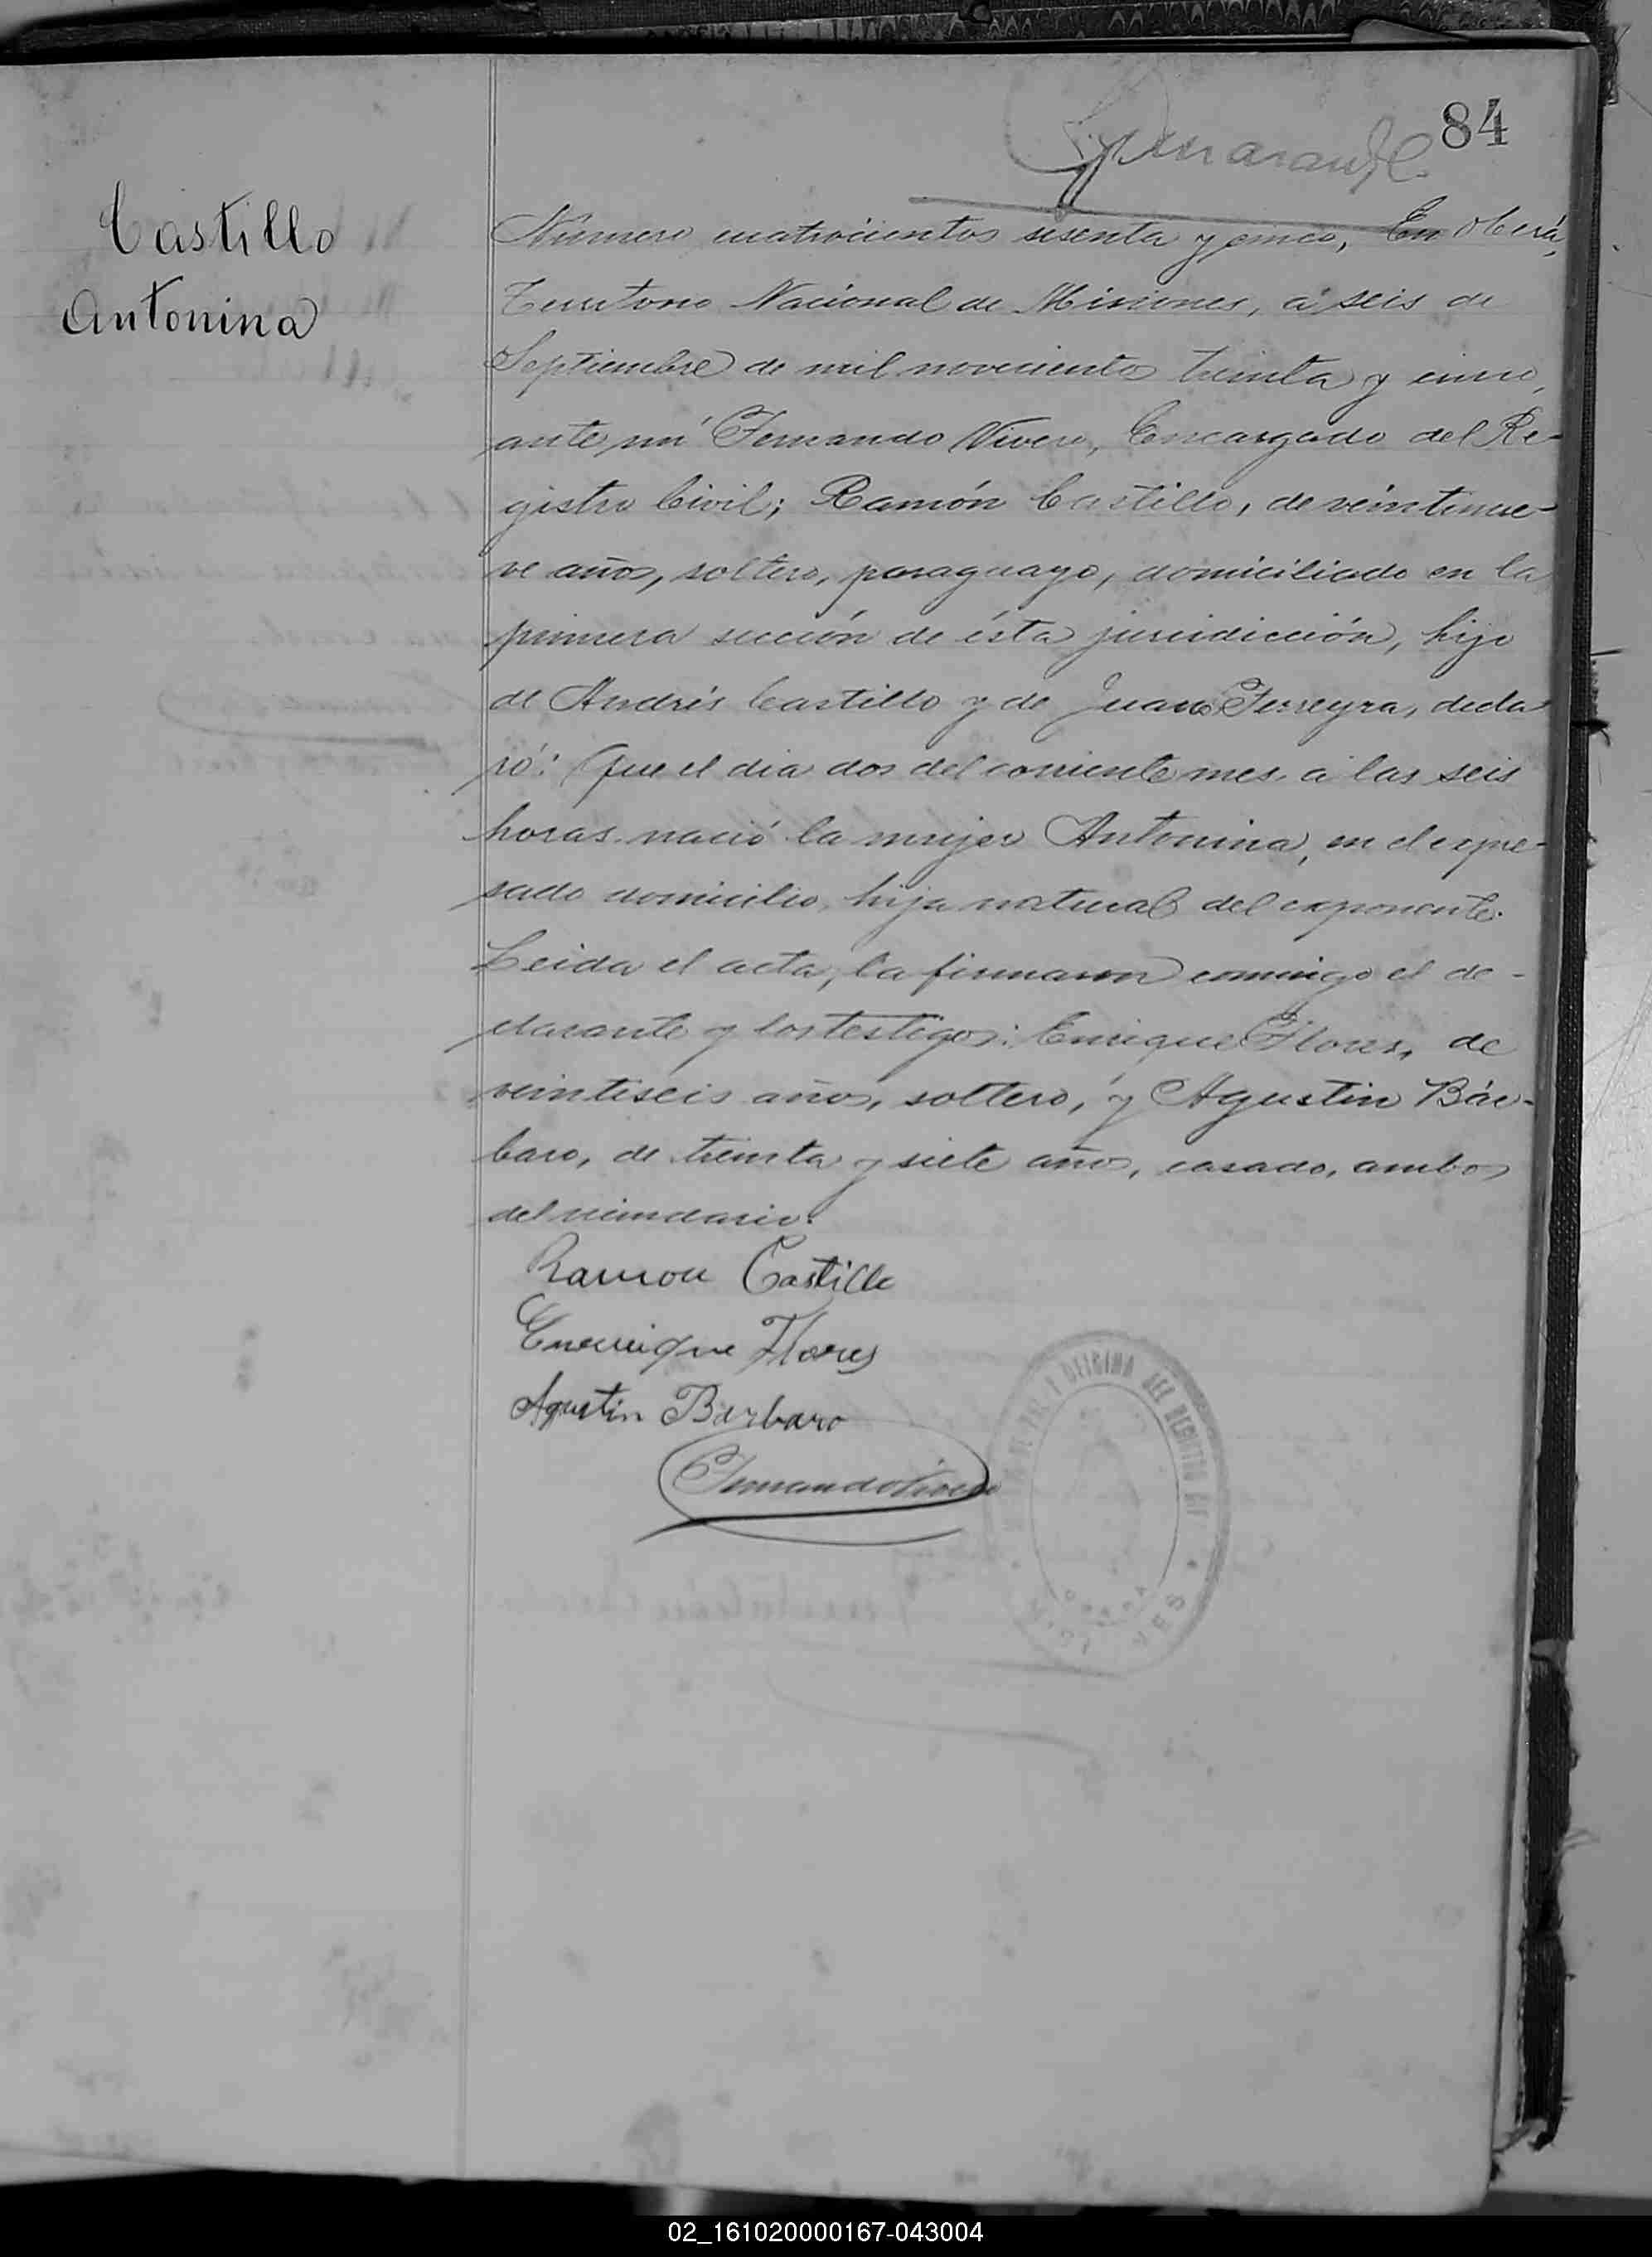 84
Castillo
Antonina
Número cuatrocientos sesenta y cinco, En Oberá,
Territorio Nacional de Misiones, a seis de
Septiembre de mil novecientos treinta y cinco,
ante mí Fernando Vivero, Encargado del Re-
gistro Civil; Ramón Castillo, de veintinue-
ve años, soltero, paraguayo, domiciliado en la
primera sección de ésta jurisdicción, hijo
de Andrés Castillo y de Juana Ferreyra, decla
ró: Que el dia dos del corriente mes a las seis
horas nació la mujer Antonina, en el expre-
sado domicilio, hija natural del exponente.
Leida el acta, la firmaron conmigo el de-
clarante y los testigos: Enrique Flores, de
veintiseis años, soltero, y Agustin Bár-
baro, de treinta y siete años, casado, ambos
del vecindario.
Ramon Castillo
Enrrique Flores
Agustin Barbaro
Fernando Vivero
OFICINA DEL REGISTRO
OBERA
02_161020000167-043004